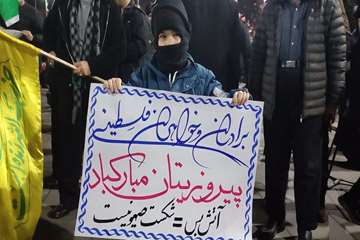 برادران و خواهران فلسطینی
پیروزیتان مبارکباد
آتش بس = شکست صهیونیست